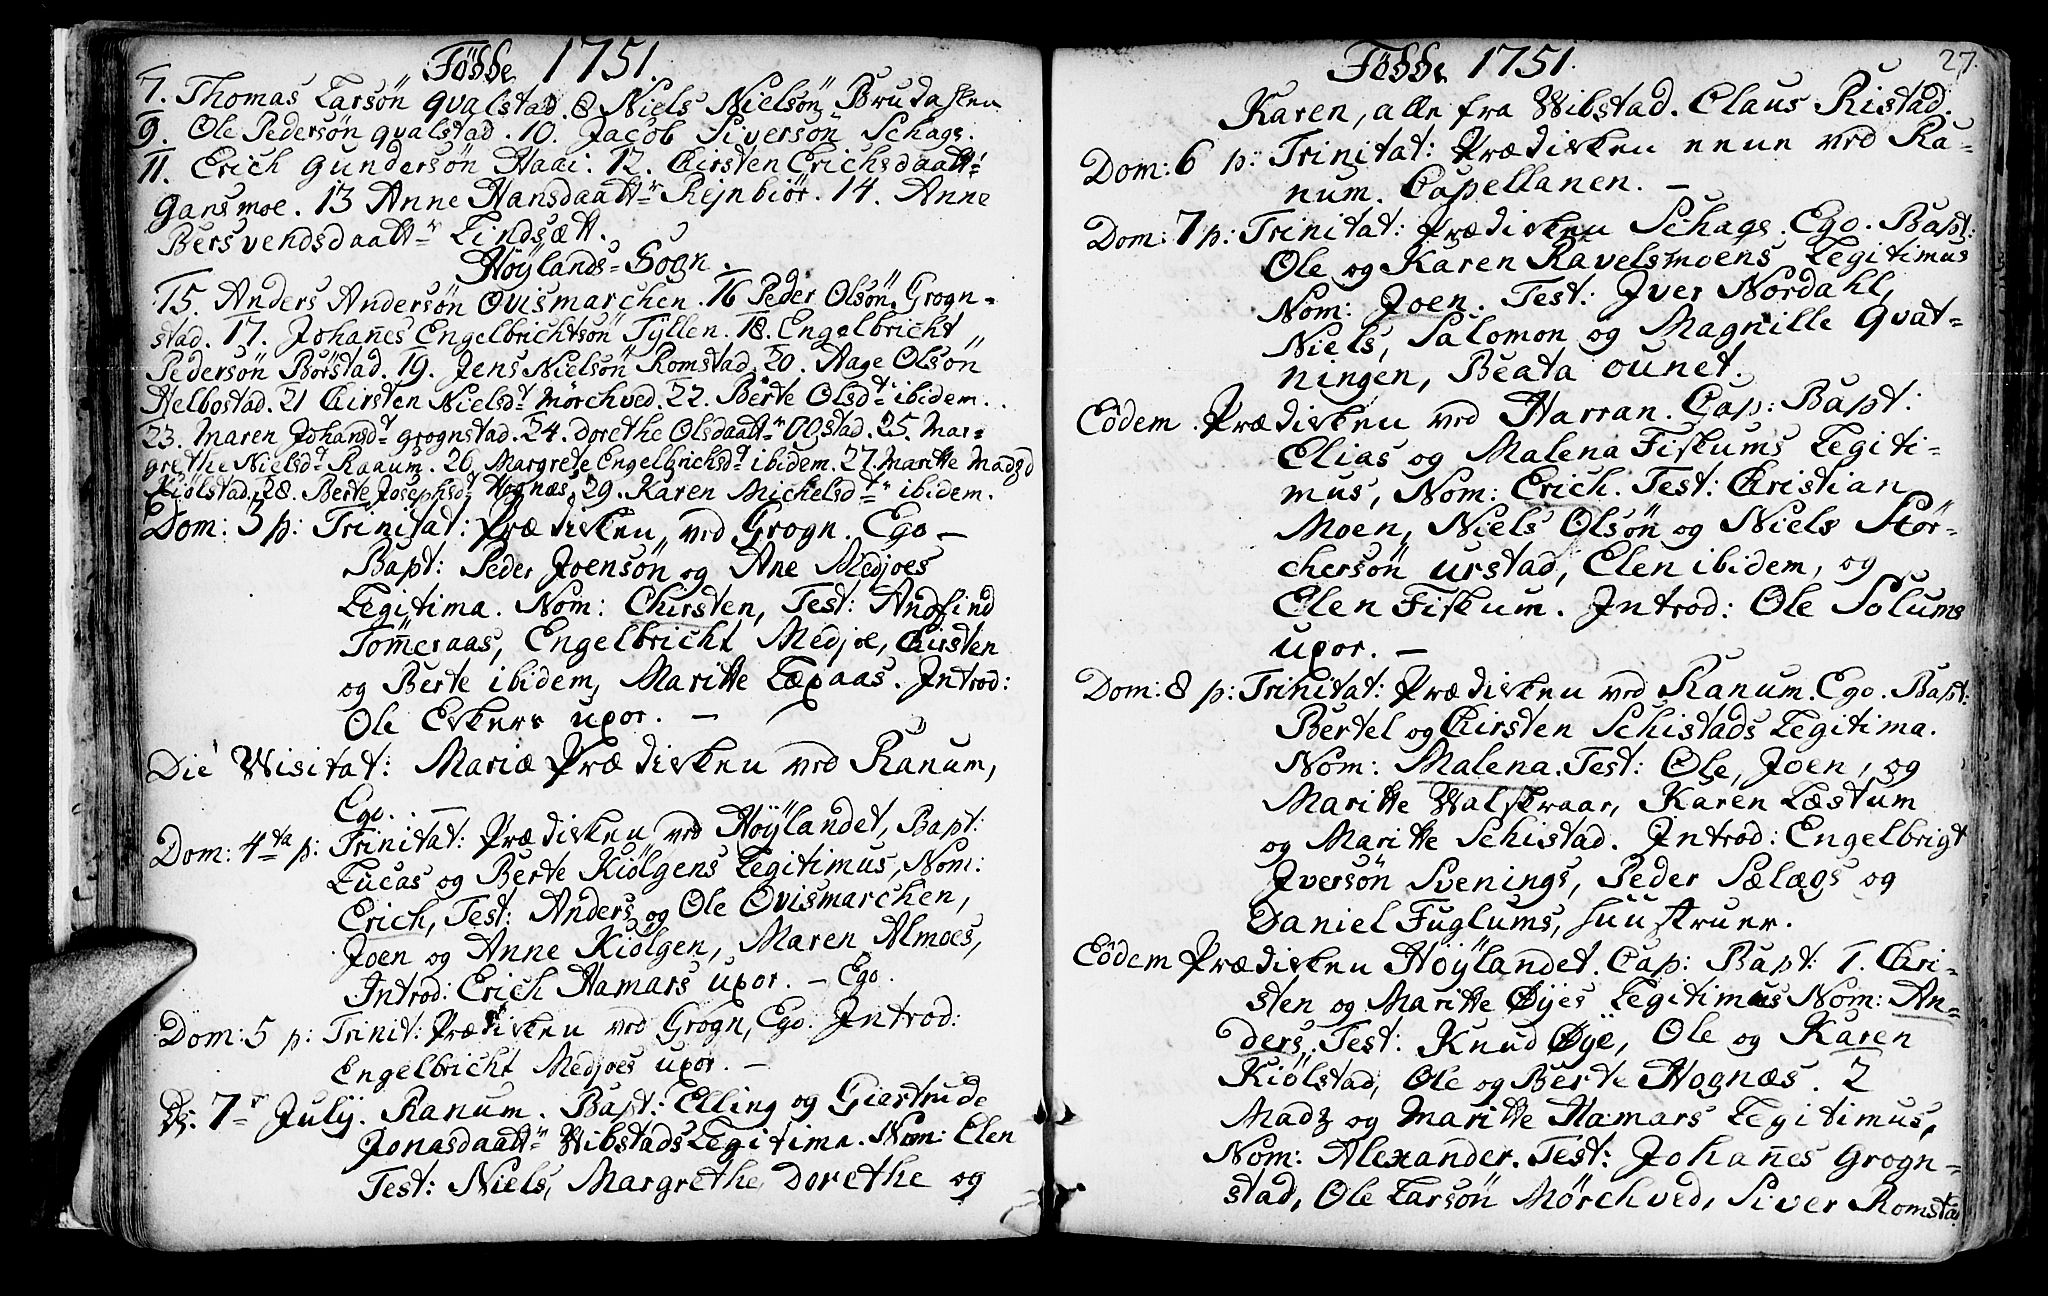 Födde 1751.
7. Thomas Larsön Qvalstad. 8 Niels Nielsön Brudasken
9. Ole Pedersön Qvalstad. 10. Jacob Siversön Schage.
11. Erich Gundersön Haai: 12. Chirsten Erichsdaatt:
Gansmoe. 13 Anne Hansdaattr Rejnbiör. 14. Anne
Bersvendsdaattr Lindsætt.
Höylands-Sogn.
15. Anders Andersön Ovismarchen. 16 Peder Olsön Grogn-
stad. 17. Johañes Engelbrichtsön Tyllen. 18. Engelbricht
Pedersön Börstad. 19. Jens Nielsön Romstad. 20. Aage Olsön
Helbostad. 21 Chirsten Nielsdt Mörchved. 22. Berte Olsdt ibidem.
23. Maren Johansdt Grognstad. 24. Dorethe Olsdaattr OOstad. 25. Mar-
grethe Nielsdt Ranum. 26. Margrete Engelbrichsdt ibidem. 27. Maritte Madzd
Kiölstad. 28. Berte Josephsdt Hognæs. 29. Karen Michelsdtr ibidem.
Dom: 3 p: Trinitat: Prædiken ved Grogn. Ego —
Bapt: Peder Joensön og Ane Medjoes
Legitima. Nom: Chirsten, Test: Andfind
Tom̃eraas, Engelbricht Medjoe, Chirsten
og Berte ibidem, Maritte Læxaas. Introd:
Ole Eskers uxor. —
Die Wisitat: Mariæ Prædiken ved Ranum,
Ego. —
Dom: 4ta p: Trinitat: Prædiken ved Höylandet, Bapt:
Lucas og Berte Kiölgens Legitimus, Nom:
Erich, Test: Anders og Ole Ovismarchen,
Joen og Anne Kiölgen, Maren Almoes,
Introd: Erich Hamars uxor. — Ego.
Dom: 5 p: Trinit: Prædiken ved Grogn, Ego. Introd:
Engelbricht Medjoes uxor. —
D: 7r Julij. Ranum. Bapt: Elling og Giertrude
Jonasdaattr Wibstads Legitima. Nom: Elen
Test: Niels, Margrethe, Dorethe og
Födde 1751.
27.
Karen, alle fra Wibstad. Claus Ristad.
Dom: 6 p: Trinitat: Prædiken ved Ra-
num. Capellanen. —
Dom: 7 p: Trinitat: Prædiken Schage. Ego. Bapt:
Ole og Karen Ravelsmoens Legitimus
Nom: Joen. Test: Jver Nordahl,
Niels, Salomon og Magnille Qvat-
ningen, Beata ounet.
Eôdem. Prædiken ved Harran. Cap: Bapt:
Elias og Malena Fiskums Legiti-
mus, Nom: Erich. Test: Christian
Moen, Niels Olsön og Niels Stör-
chersön Urstad, Elen ibidem, og
Elen Fiskum. Introd: Ole Solums
uxor. —
Dom: 8 p: Trinitat: Prædiken ved Ranum. Ego. Bapt:
Bertel og Chirsten Schistads Legitima.
Nom: Malena. Test: Ole, Joen, og
Maritte Walskraar, Karen Læstum
og Maritte Schistad. Introd: Engelbrigt
Jversön Svenings, Peder Sælægs og
Daniel Fuglums, Huustruer.
Eôdem Prædiken Höylandet. Cap: Bapt: 1. Chri-
sten og Maritte Øyes Legitimus Nom: An-
ders, Test: Knud Øye, Ole og Karen
Kiölstad, Ole og Berte Hognæs. 2
Madz og Maritte Hamars Legitimus,
Nom: Alexander. Test: Johañes Grogn-
stad, Ole Larsön Mörchved, Siver Romsta